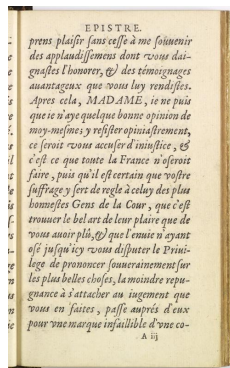 EPISTRE.
prens plaisir sans cesse à me souuenir
des applaudissemens dont vous dai-
gnastes l'honorer, & des témoignages
auantageux que vous luy rendistes.
Apres cela, MADAME, ie ne puis
que ie n'aye quelque bonne opinion de
moy-mesme; y resister opiniastrement,
ce seroit vous accuser d'iniustice, &
c'est ce que toute la France n'oseroit
faire, puis qu'il est certain que vostre
suffrage y sert de regle à celuy des plus
honnestes Gens de la Cour, que c'est
trouuer le bel art de leur plaire que de
vous auoir plû, & que l'enuie n'ayant
osé jusqu'icy vous disputer le Priui-
lege de prononcer souuerainement sur
les plus belles choses, la moindre repu-
gnance à s'attacher au iugement que
vous en faites, passe auprés d'eux
pour vne marque infaillible d'vne co-
A iij